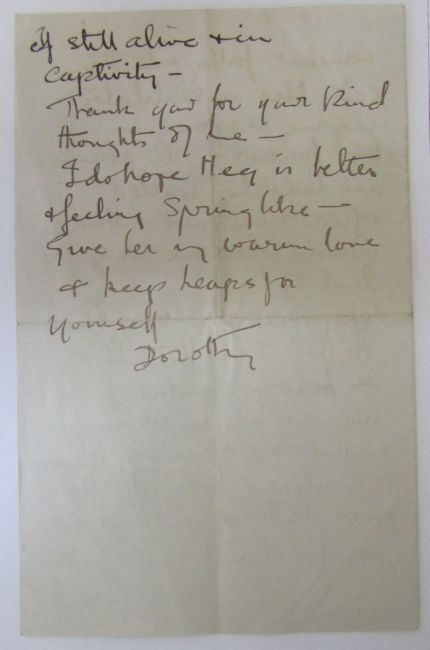 If still alive & in
captivity –
Thank you for your kind
thoughts of me –
I do hope Meg is better
& feeling Spring like –
Give her my warm love
& keep heaps for
yourself
Dorothy